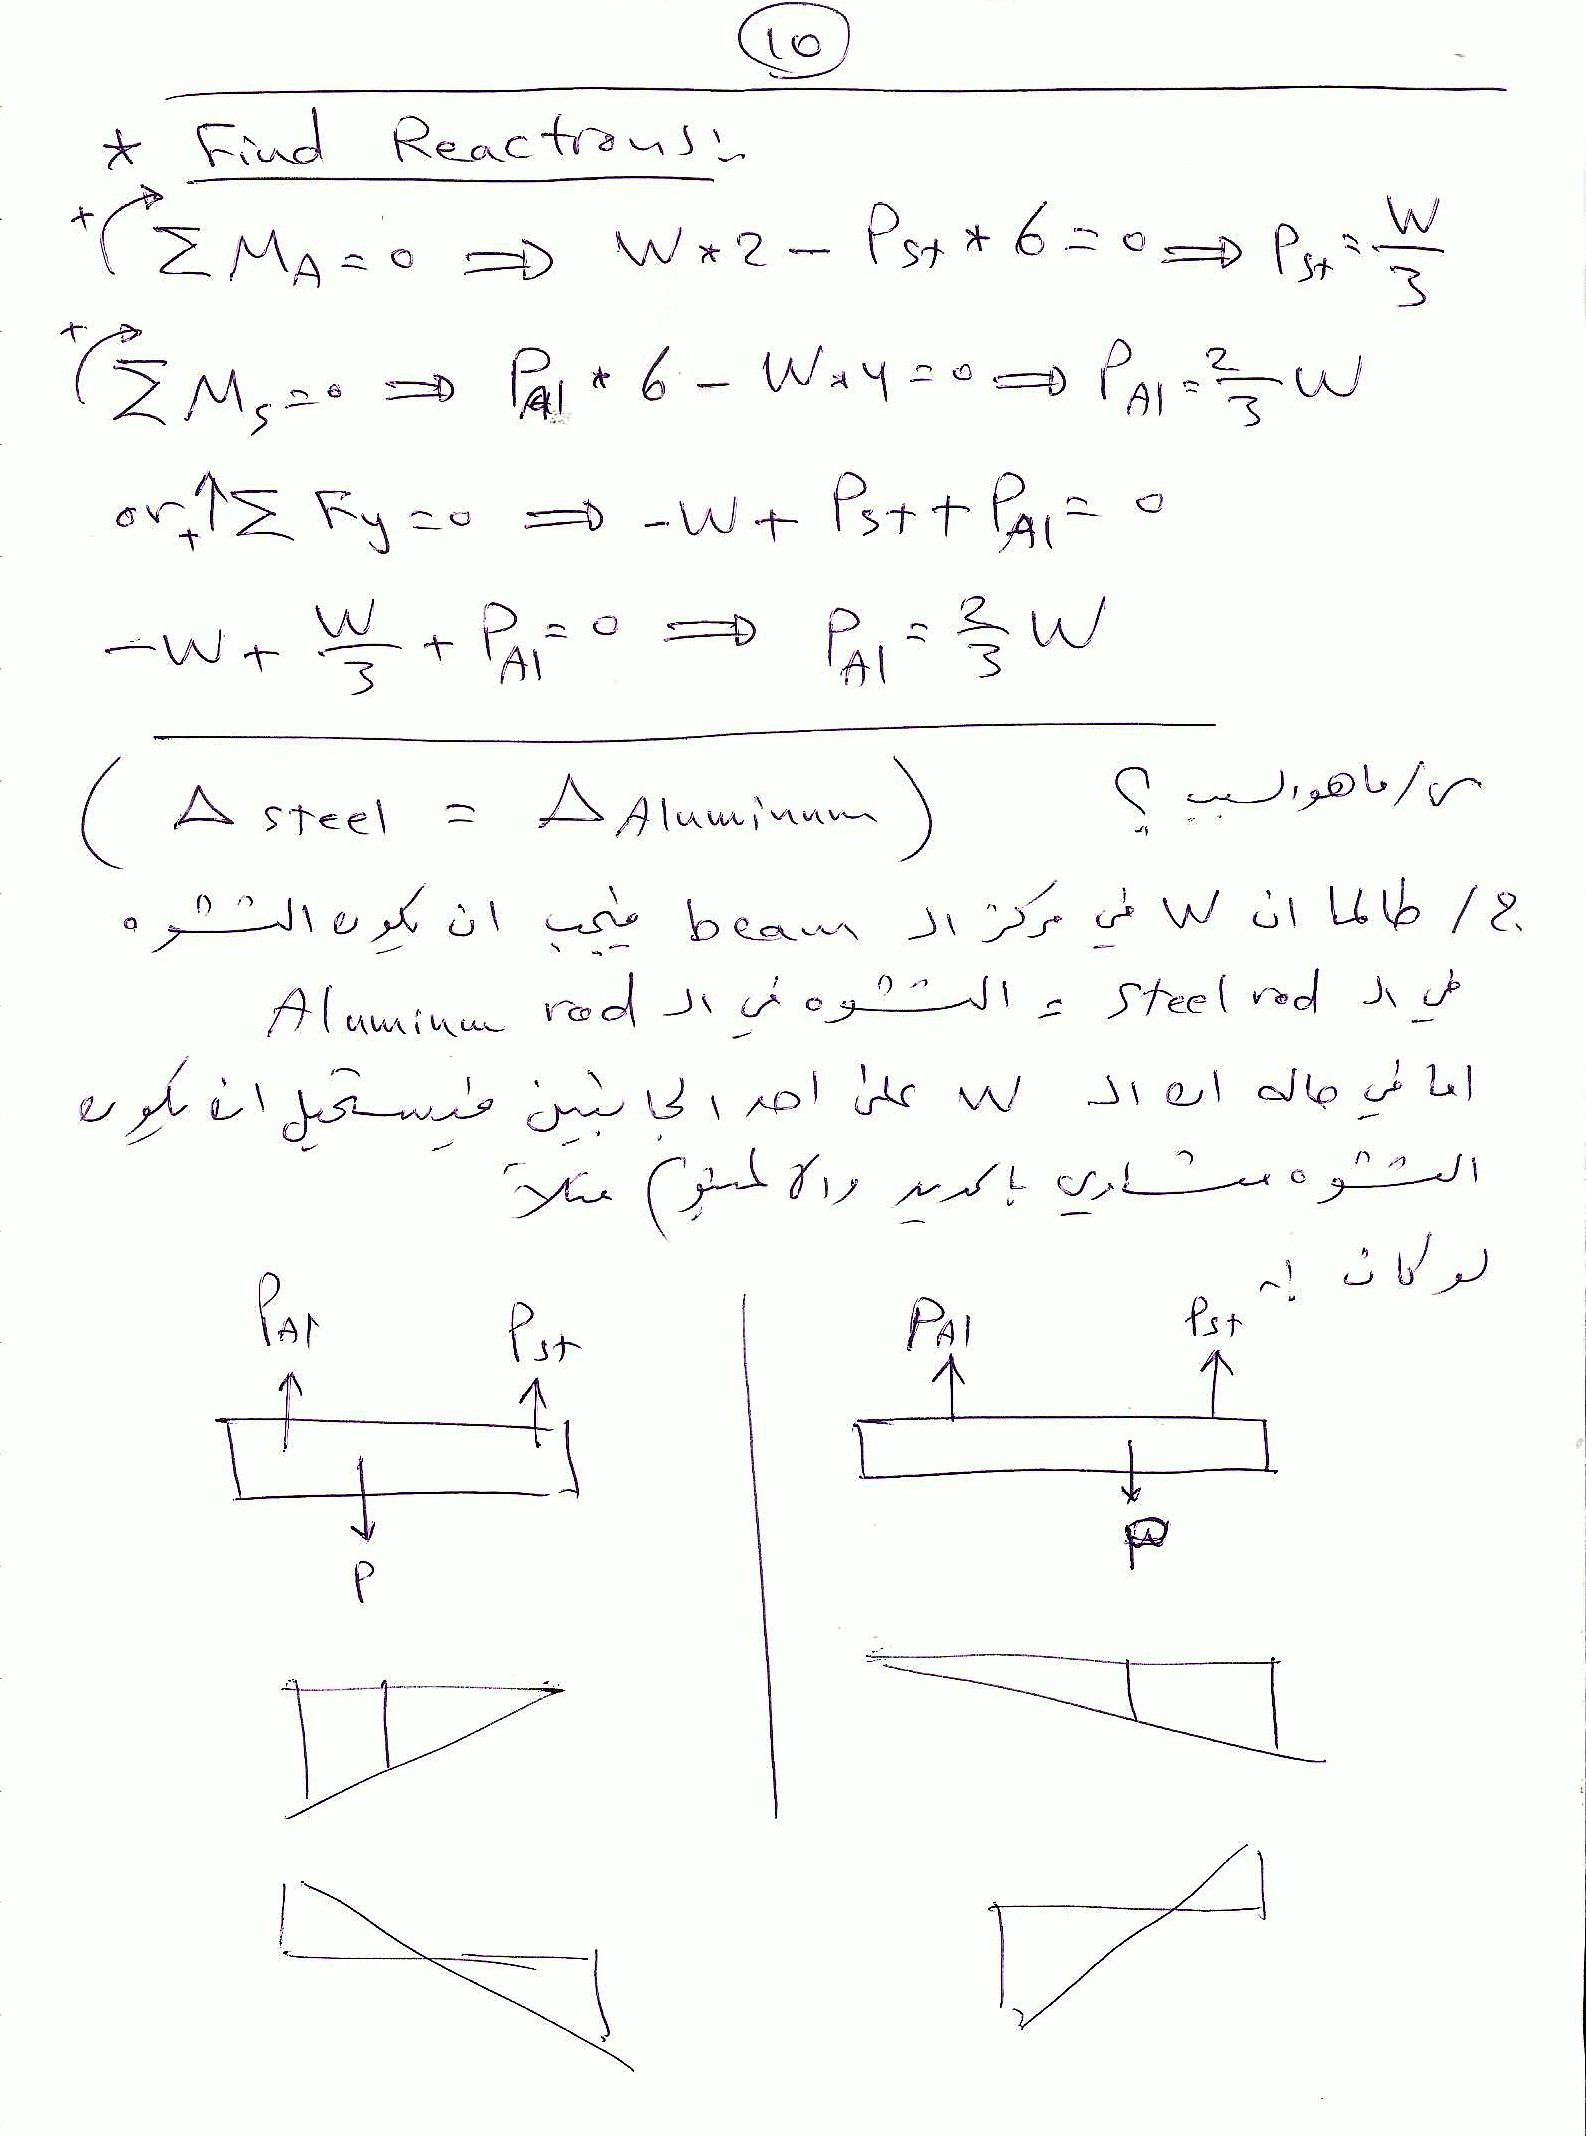 10
* Find Reactions:-
+ ΣM_A = 0 ⇒ W*2 - P_st * 6 = 0 ⇒ P_st = W/3
+ ΣM_s = 0 ⇒ P_Al * 6 - W*4 = 0 ⇒ P_Al = 2/3 W
or +↑ΣFy = 0 ⇒ -W + P_st + P_Al = 0
-W + W/3 + P_Al = 0 ⇒ P_Al = 2/3 W
(Δ steel = Δ Aluminum) س/ ما هو السبب ؟
ج/ طالما ان W في مركز الـ beam فيجب ان يكون التشوه
في الـ steel rod = التشوه في الـ Aluminum rod
اما في حاله ان الـ W على احد الجانبين فيستحيل ان يكون
التشوه متساوي بالحديد والالمنيوم مثلاً
لو كان :-
P_Al P_st
P
P_Al P_st